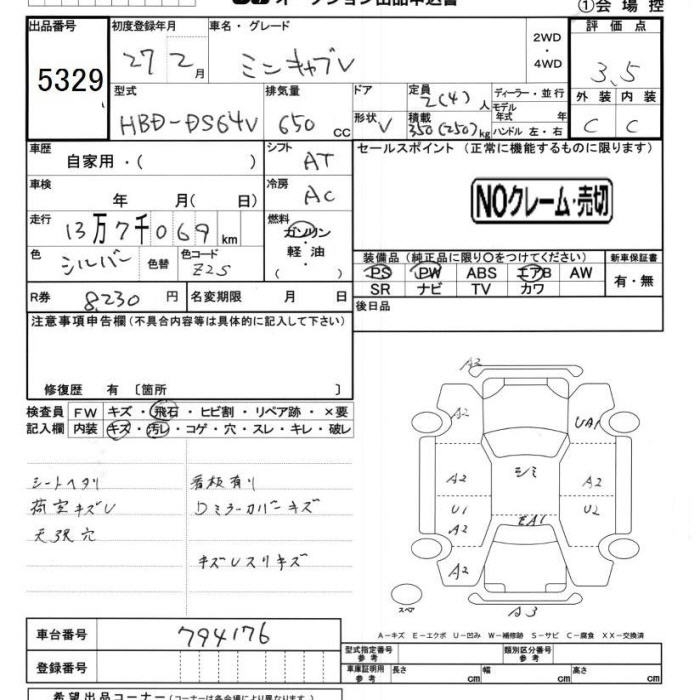 ①会場控
出品番号 初度登録年月 車名・グレード 2WD ・ 4WD 評価点
5329 27年2月 ミニキャブV 3.5
型式 排気量 ドア 定員 2(4)人 ディーラー・並行 外装 内装
HBD-DS64V 650cc 形状 V 積載 350(250)kg モデル年式 年 ハンドル 左・右 C C
車歴 自家用・( ) シフト AT セールスポイント (正常に機能するものに限ります)
車検 年 月( 日) 冷房 AC NOクレーム・売切
走行 13万7千069km 燃料 ガソリン・軽油 ( )
色 シルバー 色替 色コード Z2S 装備品 (純正品に限り〇をつけてください) 新車保証書
PS PW ABS エアB AW 有・無
SR ナビ TV カワ
R券 8,230円 名変期限 月 日 後日品
注意事項申告欄 (不具合内容等は具体的に記入して下さい)
修復歴 有 〔箇所 〕
検査員 FW キズ・飛石・ヒビ割・リペア跡・×要
記入欄 内装 キズ・汚レ・コゲ・穴・スレ・キレ・破レ
シートヘタリ 看板有り
荷室キズU Dミラーカバーキズ
天張穴
キズUスリキズ
A2
A2 UA1
シミ
A2 A2
U1 U2
A2 EA1
A2
スペア A3
A-キズ E-エクボ U-凹み W-補修跡 S-サビ C-腐食 XX-交換済
車台番号 794176
型式指定番号 参考 類別区分番号 参考
登録番号 車庫証明用 参考 長さ cm 幅 cm 高さ cm
希望出品コーナー (コーナーは各会場により異なります。)